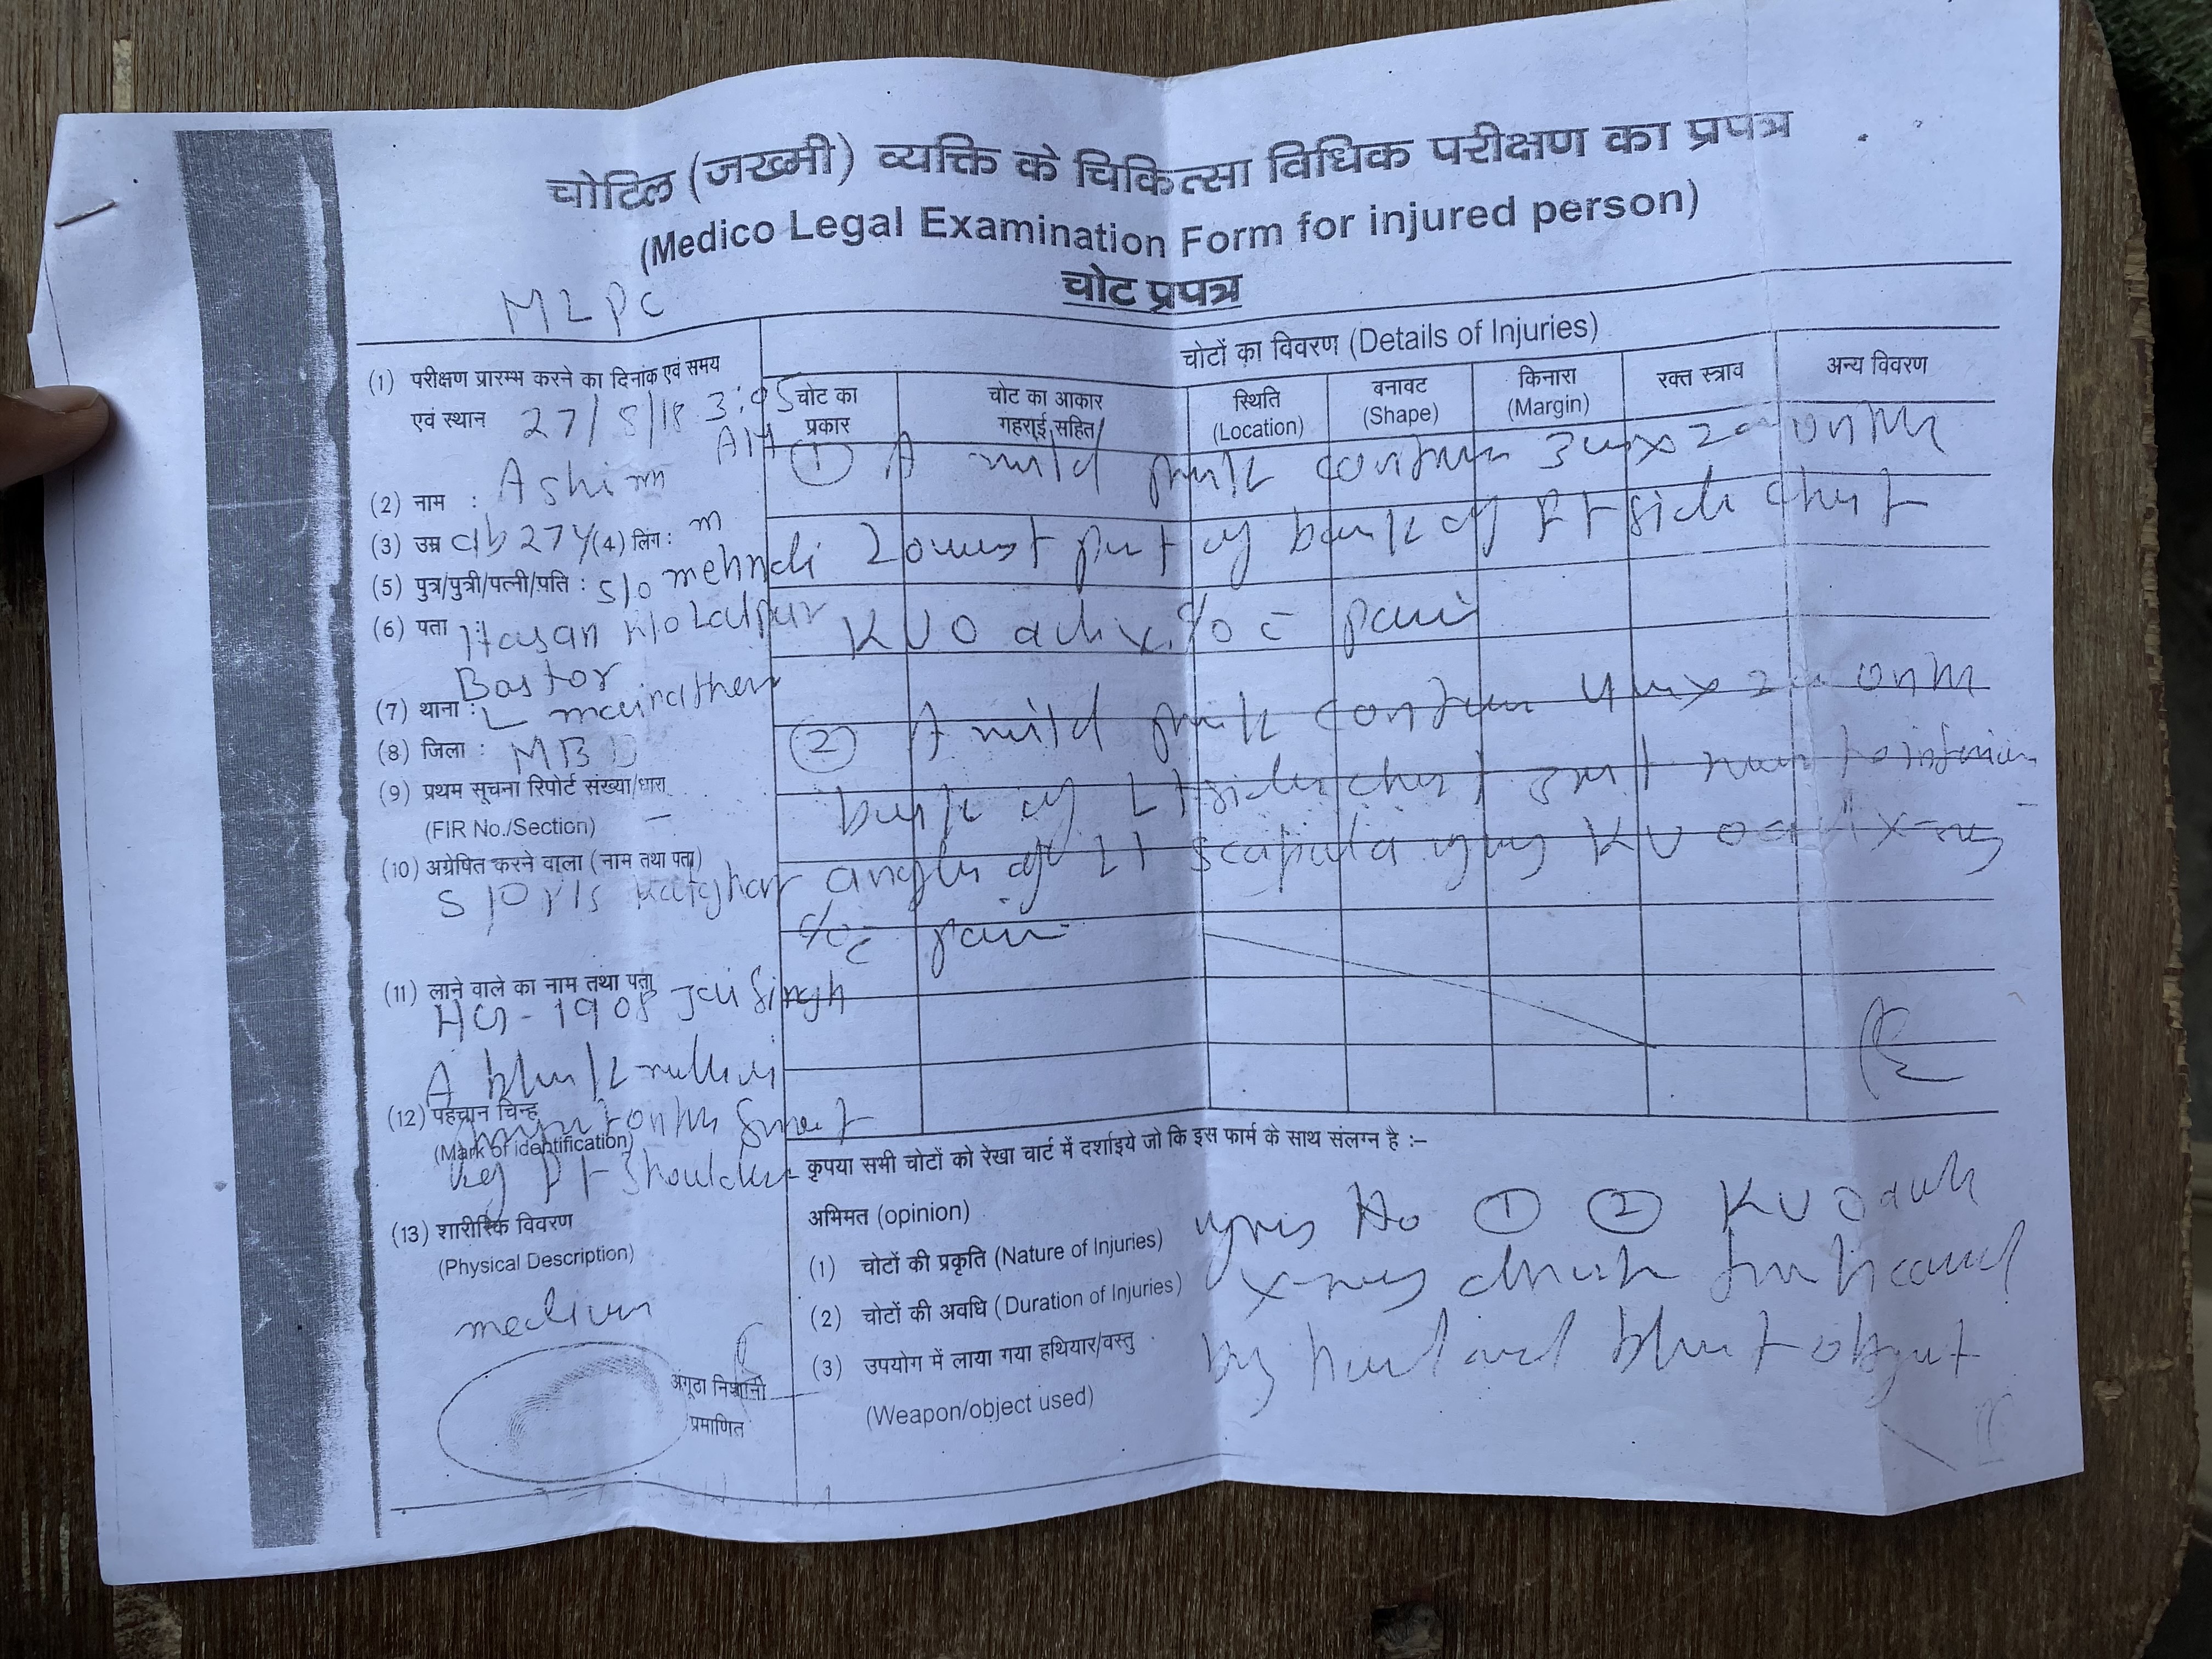 चोटिल (जख्मी) व्यक्ति के चिकित्सा विधिक परीक्षण का प्रपत्र
(Medico Legal Examination Form for injured person)
चोट प्रपत्र
MLPC
(1) परीक्षण प्रारम्भ करने का दिनांक एवं समय
एवं स्थान 27/ /18 3:05
AM
(2) नाम : Ashim
(3) उम्र ab 27y (4) लिंग : m
(5) पुत्र/पुत्री/पत्नी/पति : S/o mehndi
(6) पता Hasan R/o Lalpur
(7) थाना :
(8) जिला : MBD
(9) प्रथम सूचना रिपोर्ट संख्या/धारा
(FIR No./Section) –
(10) अग्रेषित करने वाला (नाम तथा पता)
(11) लाने वाले का नाम तथा पता
HG-1908 Jai Singh
A
(12) पहचान चिन्ह
(Mark of identification)
Rt Shoulder
(13) शारीरिक विवरण
(Physical Description)
medium
अंगूठा निशानी
प्रमाणित
चोटों का विवरण (Details of Injuries)
चोट का प्रकार
चोट का आकार गहराई सहित
स्थिति (Location)
बनावट (Shape)
किनारा (Margin)
रक्त स्त्राव
अन्य विवरण
(1) A mild contusion 3cm x 2cm on the
Lowest part of back of Rt side chest
KUO adv x. c/o c pain
(2) A mild contusion 4cm x 2cm on the
back of Lt side chest near to inferior
angle of Lt scapula KUO adv x-ray
c/o c pain
कृपया सभी चोटों को रेखा चार्ट में दर्शाइये जो कि इस फार्म के साथ संलग्न है :–
अभिमत (opinion)
No (1) (2) KUO adv
(1) चोटों की प्रकृति (Nature of Injuries)
x-ray caused
(2) चोटों की अवधि (Duration of Injuries)
by hard and blunt object
(3) उपयोग में लाया गया हथियार/वस्तु
(Weapon/object used)